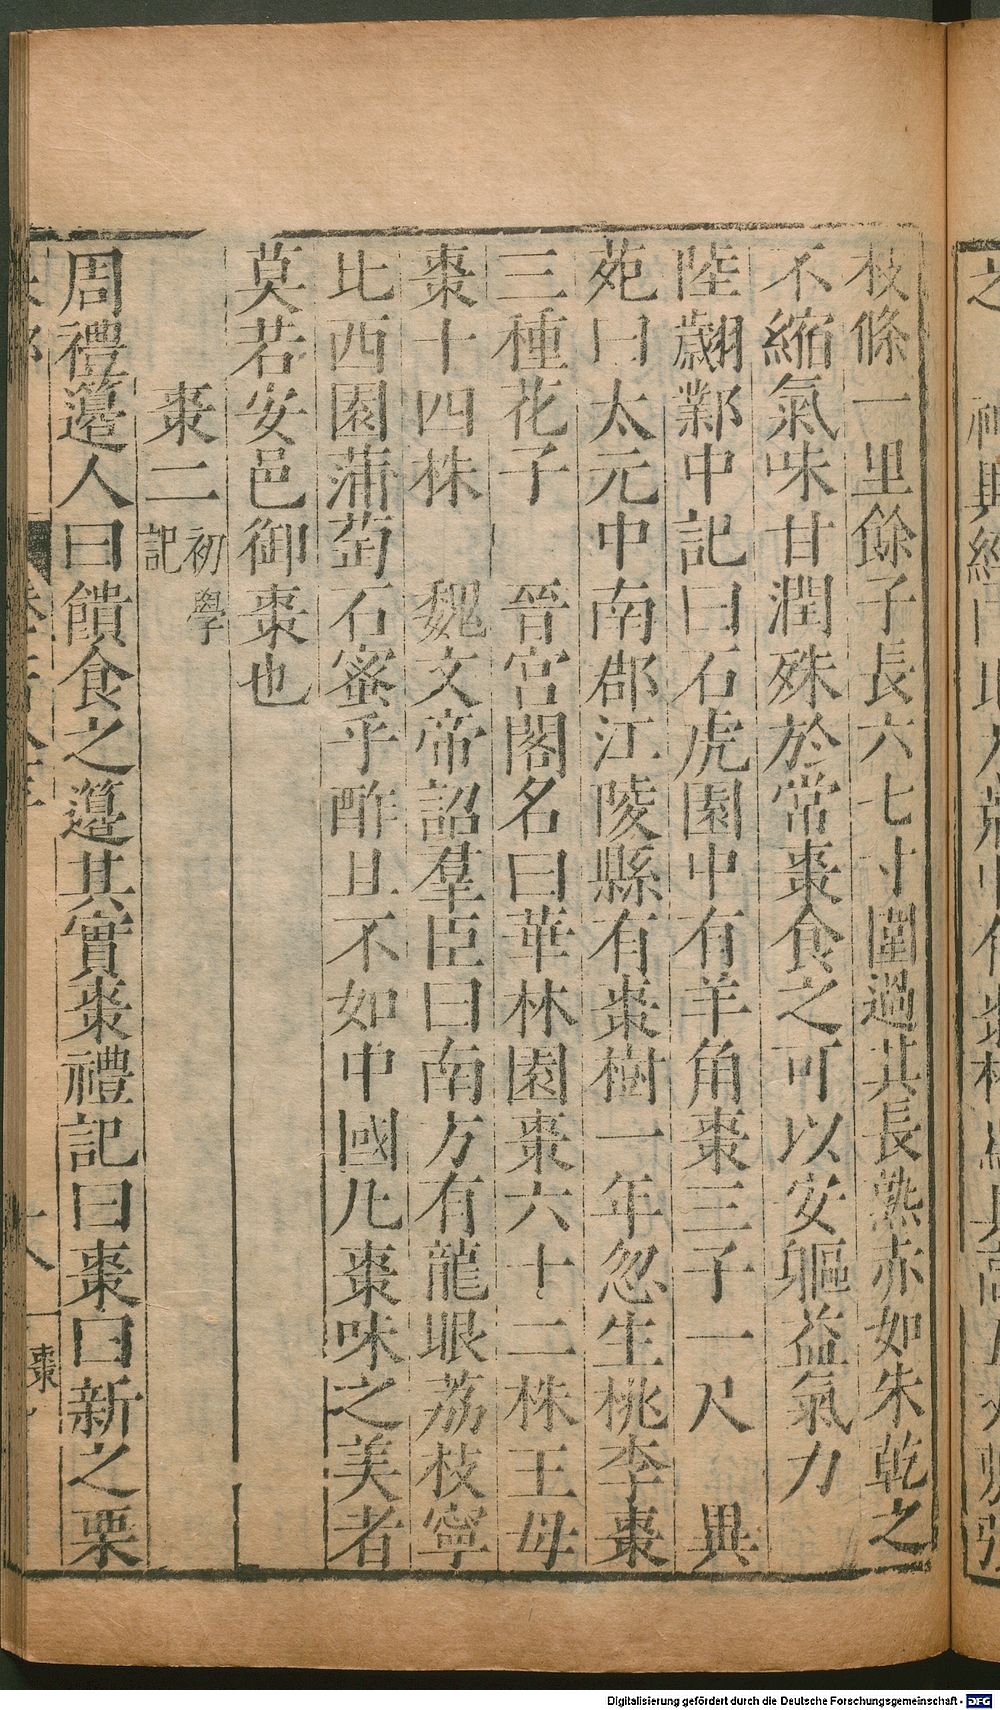 枝條一里餘子長六七寸圍過其長熟赤如朱乾之
不縮氣味甘潤殊於常棗食之可以安軀益氣力
陸翽鄴中記曰石虎園中有羊角棗三子一尺　異
苑曰太元中南郡江陵縣有棗樹一年忽生桃李棗
三種花子　晉宮閣名曰華林園棗六十二株王母
棗十四株　魏文帝詔羣臣曰南方有龍眼荔枝寧
比西園蒲萄石蜜乎酢且不如中國凡棗味之美者
莫若安邑御棗也
棗二　初學記
周禮籩人曰饋食之籩其實棗禮記曰棗曰新之栗
十八
棗
Digitalisierung gefördert durch die Deutsche Forschungsgemeinschaft - DFG